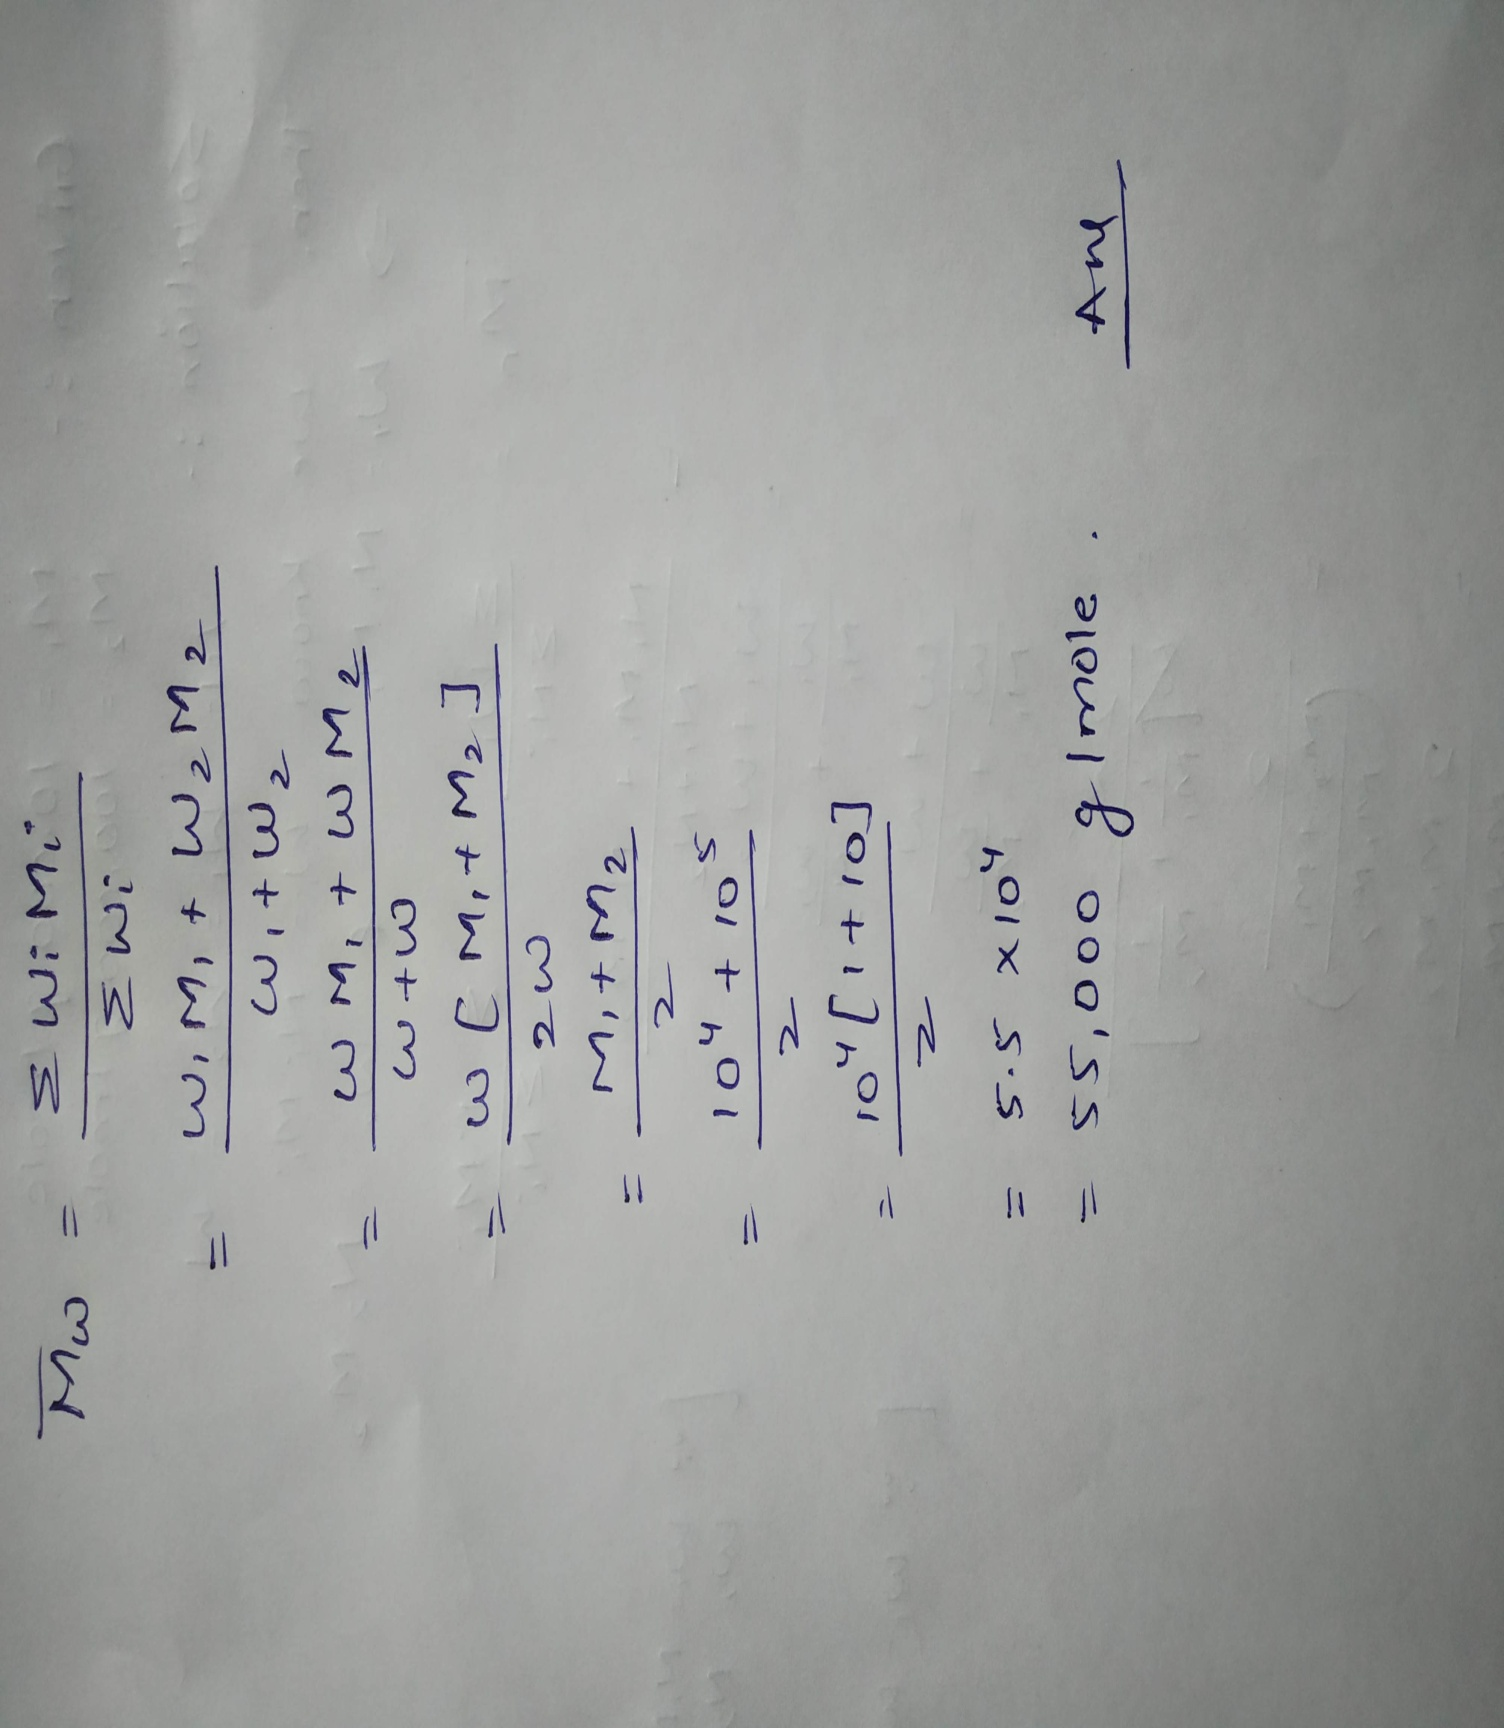 M̅w = Σ Wi Mi / Σ Wi
= W₁ M₁ + W₂ M₂ / W₁ + W₂
= W M₁ + W M₂ / W + W
= W [ M₁ + M₂ ] / 2 W
= M₁ + M₂ / 2
= 10⁴ + 10⁵ / 2
= 10⁴ [ 1 + 10 ] / 2
= 5.5 × 10⁴
= 55,000 g / mole . Ans